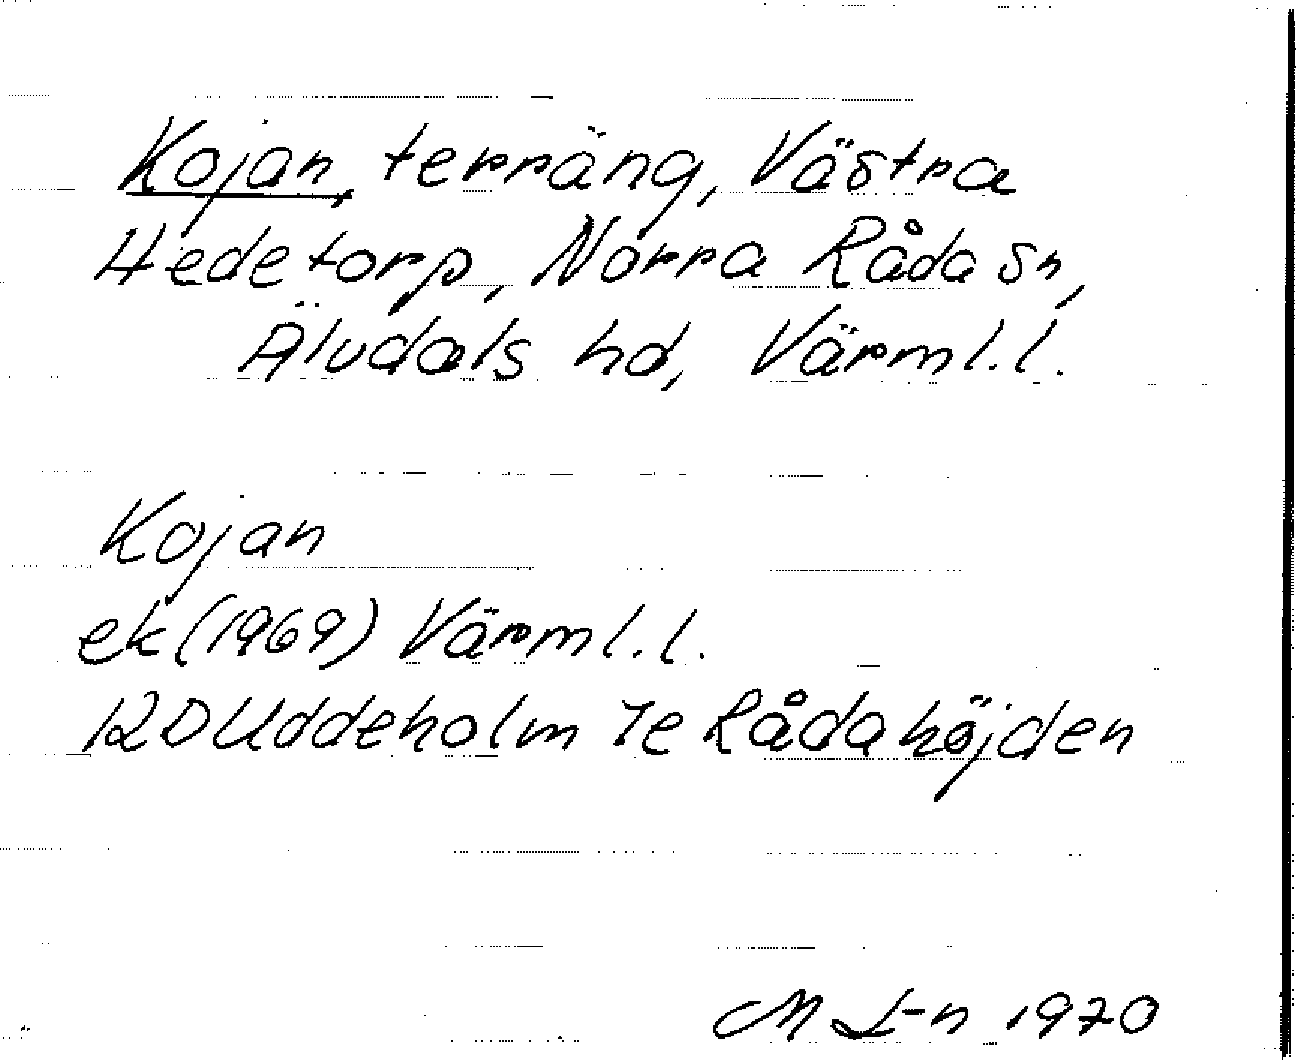 Kojan, terräng, Västra
Hedetorp, Norra Råda sn,
Älvdals hd, Värml.l.
Kojan
ek (1969) Värml.l.
12D Uddeholm 7e Rådahöjden
M L-n 1970